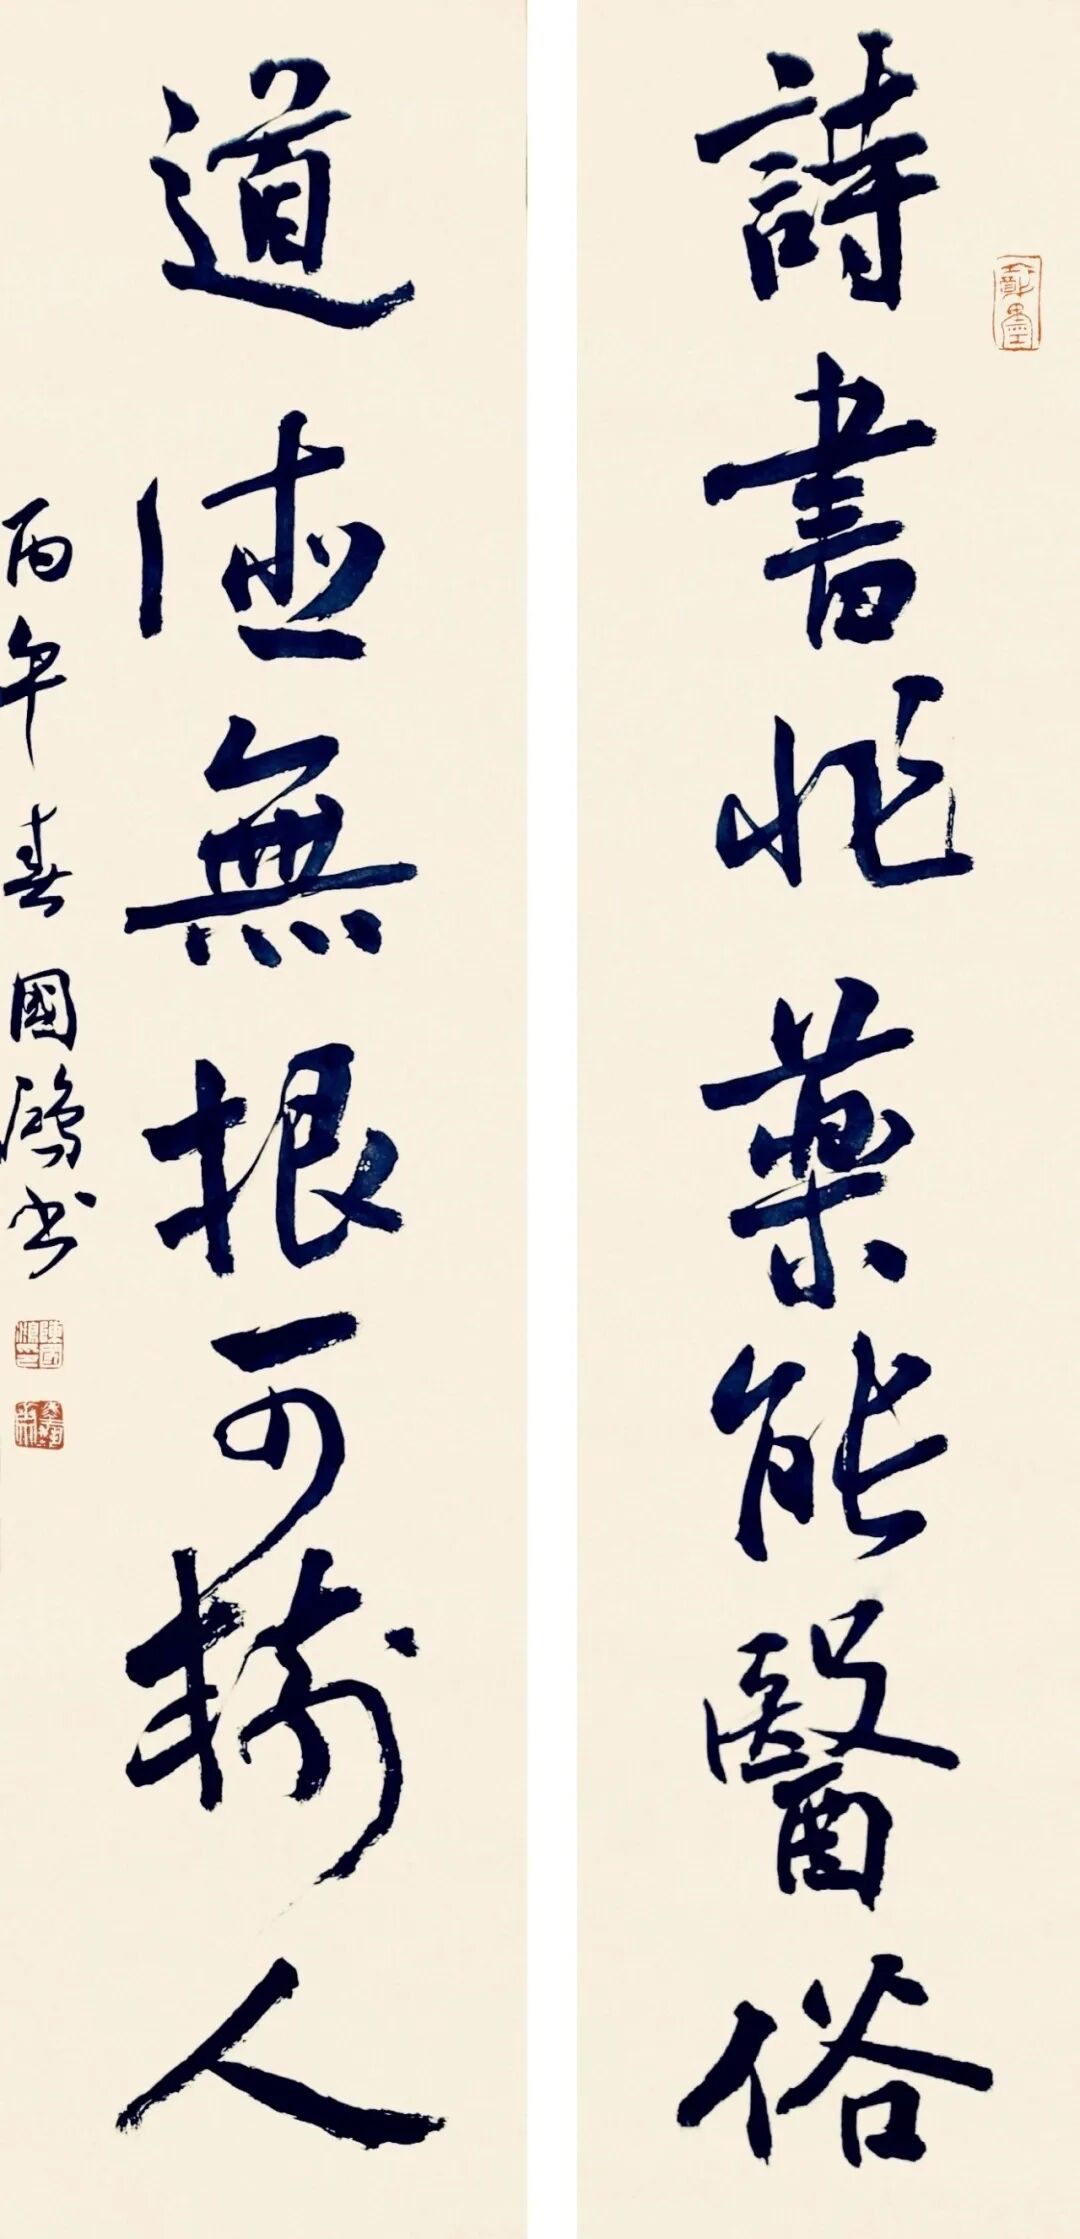 詩書非藥能醫俗
道德無根可樹人
丙午春國鴻书